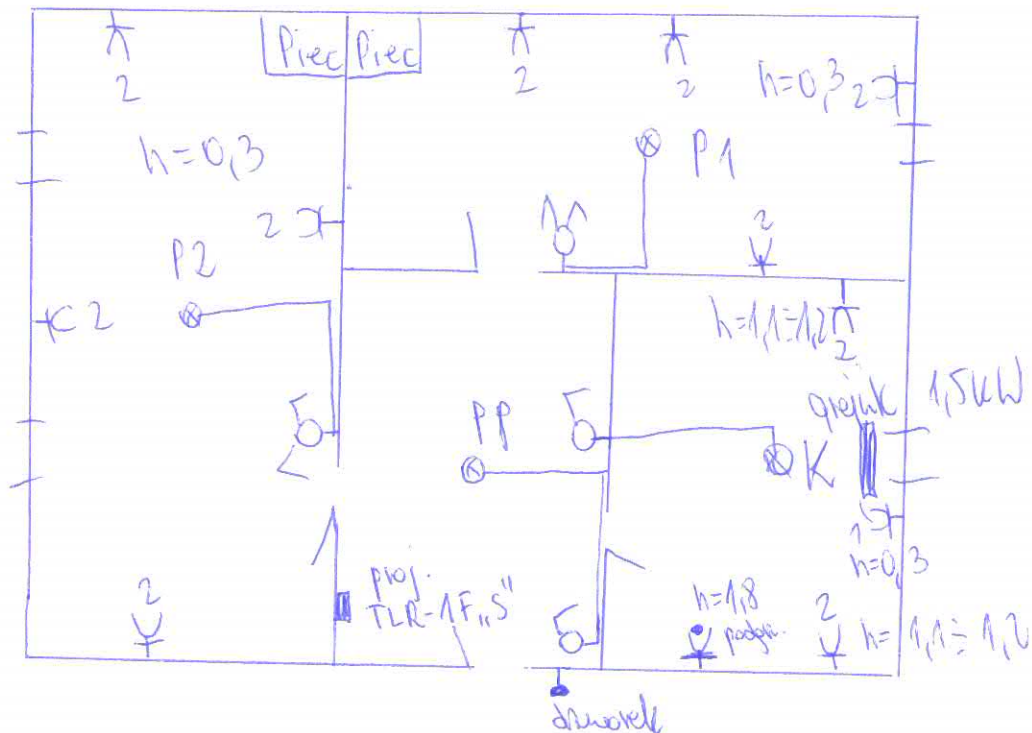 Piec Piec
2
2
2
h=0,3
2
h=0,3
P1
2
2
P2
2
h=1,1÷1,2
2
grzejnik 1,5kW
PP
K
1
h=0,3
proj.
TLR-1F„S"
2
h=1,8
podgrz.
2
h=1,1÷1,2
dzwonek